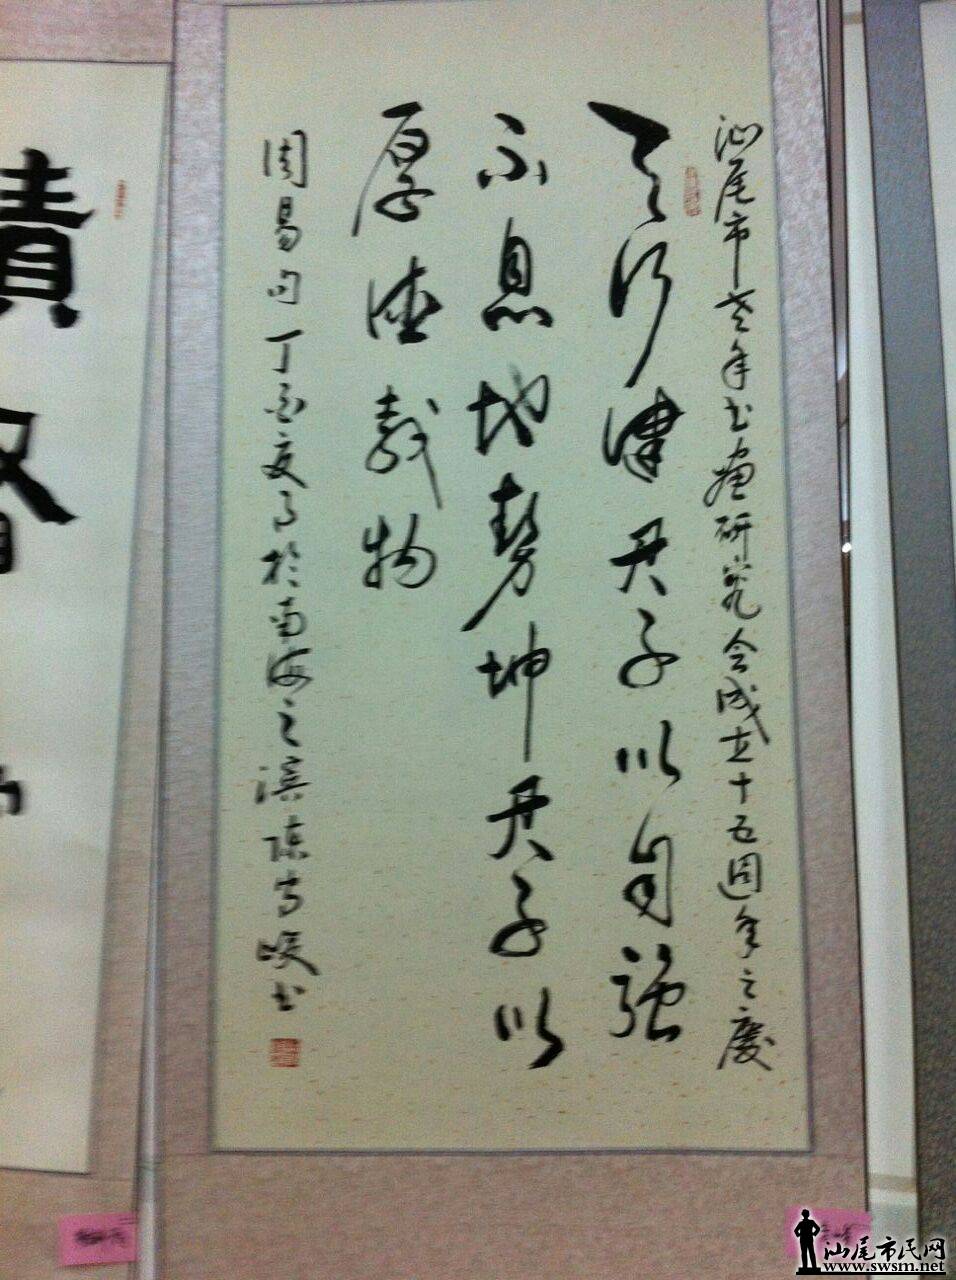 汕尾市老年书画研究会成立十五週年之慶
天行健君子以自强
不息地势坤君子以
厚德载物
周易句丁夏月於南海之滨陈书
汕尾市民网
www.swsm.net